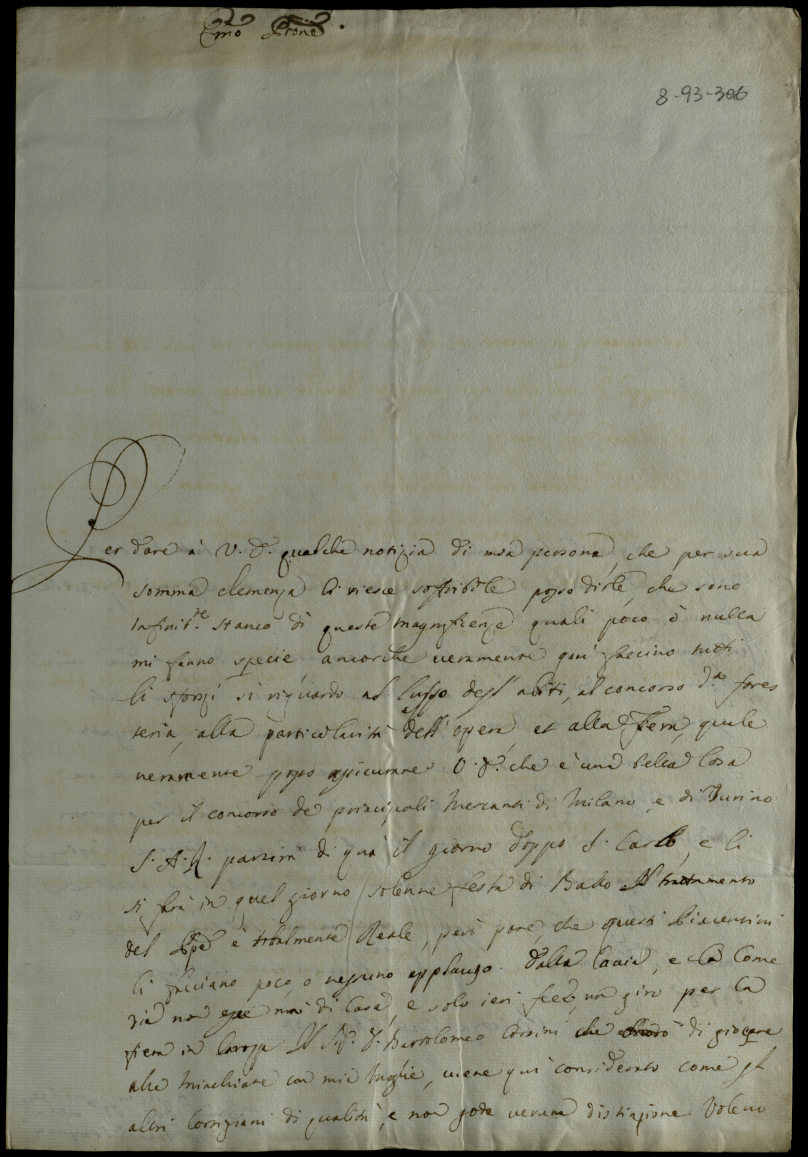 Emo Prone
8-93-306
Per dare à V. E. qualche notizia di mia persona, che per sua
somma clemenza li riesce soffribile posso dirle, che sono
Infinit.te stanco di queste magnificenze quali poco ò nulla
mi fanno specie ancorche veramente qui faccino tutti
li sforzi si riguardo al lusso degl' abiti, al concorso d.a fores
teria, alla particolarità dell' opera, et alla Fiera, quale
veramente posso assicurare V. E. che è una bella Cosa
per il concorso de principali Mercanti di Milano, e di Turino
S. A. R. partirà di quà il giorno doppo S. Carlo, e li
si farà in quel giorno solenne festa di Ballo Il trattamento
del Ppe è totalmente Reale, però pare, che questi Piacentini
li facciano poco, o nessuno applauso. Dalla Caccia, e la Come
dia non esce mai di Casa, e solo ieri fece un giro per la
fiera in Carozza Il Sig. D. Bartolomeo Corsini che di giocare
alle Minchiate con mia Moglie, viene qui considerato come gl'
altri Cortigiani di qualità, e non gode veruna distinzione. Voleuo